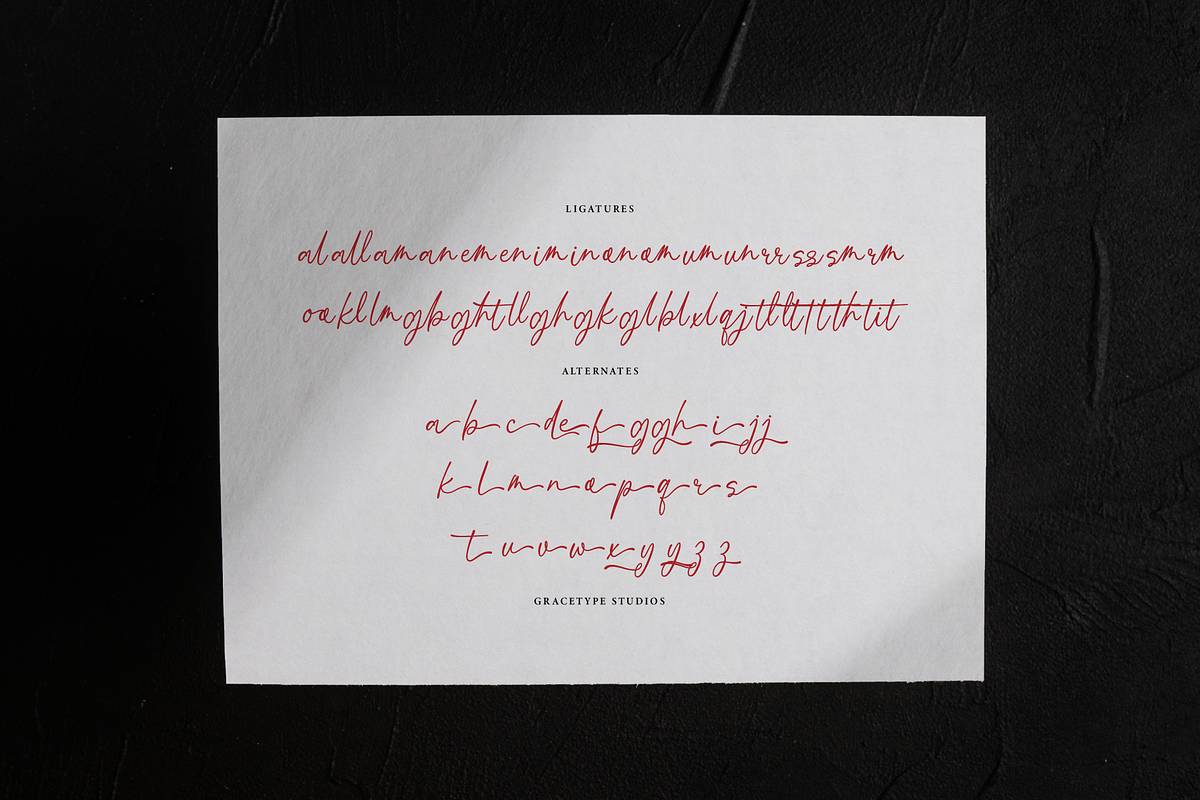 LIGATURES
alallamanemeniminonomumunrrssssmrm
ookllmgbghtllghgkglblxlqjtltltttthtit
ALTERNATES
abcdefgghijj
klmnopqrs
tuvwxyyzz
GRACETYPE STUDIOS